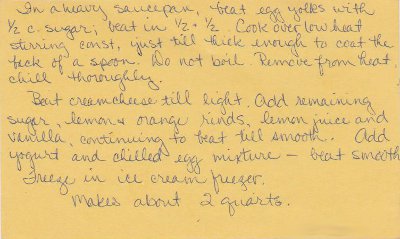 In a heavy saucepan, beat egg yolks with
1/2 c. sugar; beat in 1/2 · 1/2. Cook over low heat
stirring const, just till thick enough to coat the
back of a spoon. Do not boil. Remove from heat,
chill thoroughly.
Beat creamcheese till light. Add remaining
sugar, lemon & orange rinds, lemon juice and
vanilla, continuing to beat till smooth. Add
yogurt and chilled egg mixture - beat smooth
Freeze in ice cream freezer.
Makes about 2 quarts.